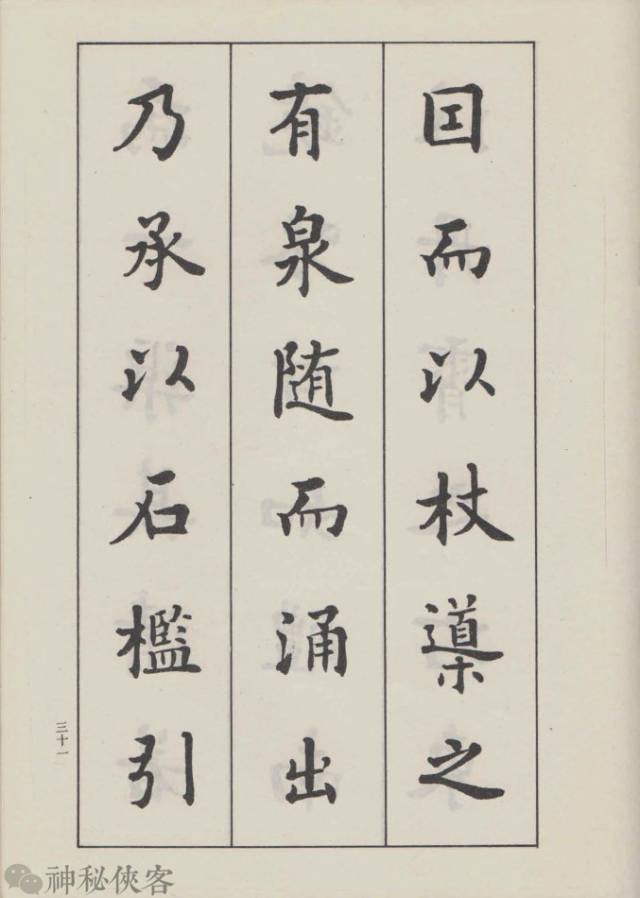 囙而以杖導之
有泉随而涌出
乃承以石檻引
三十一
神秘俠客